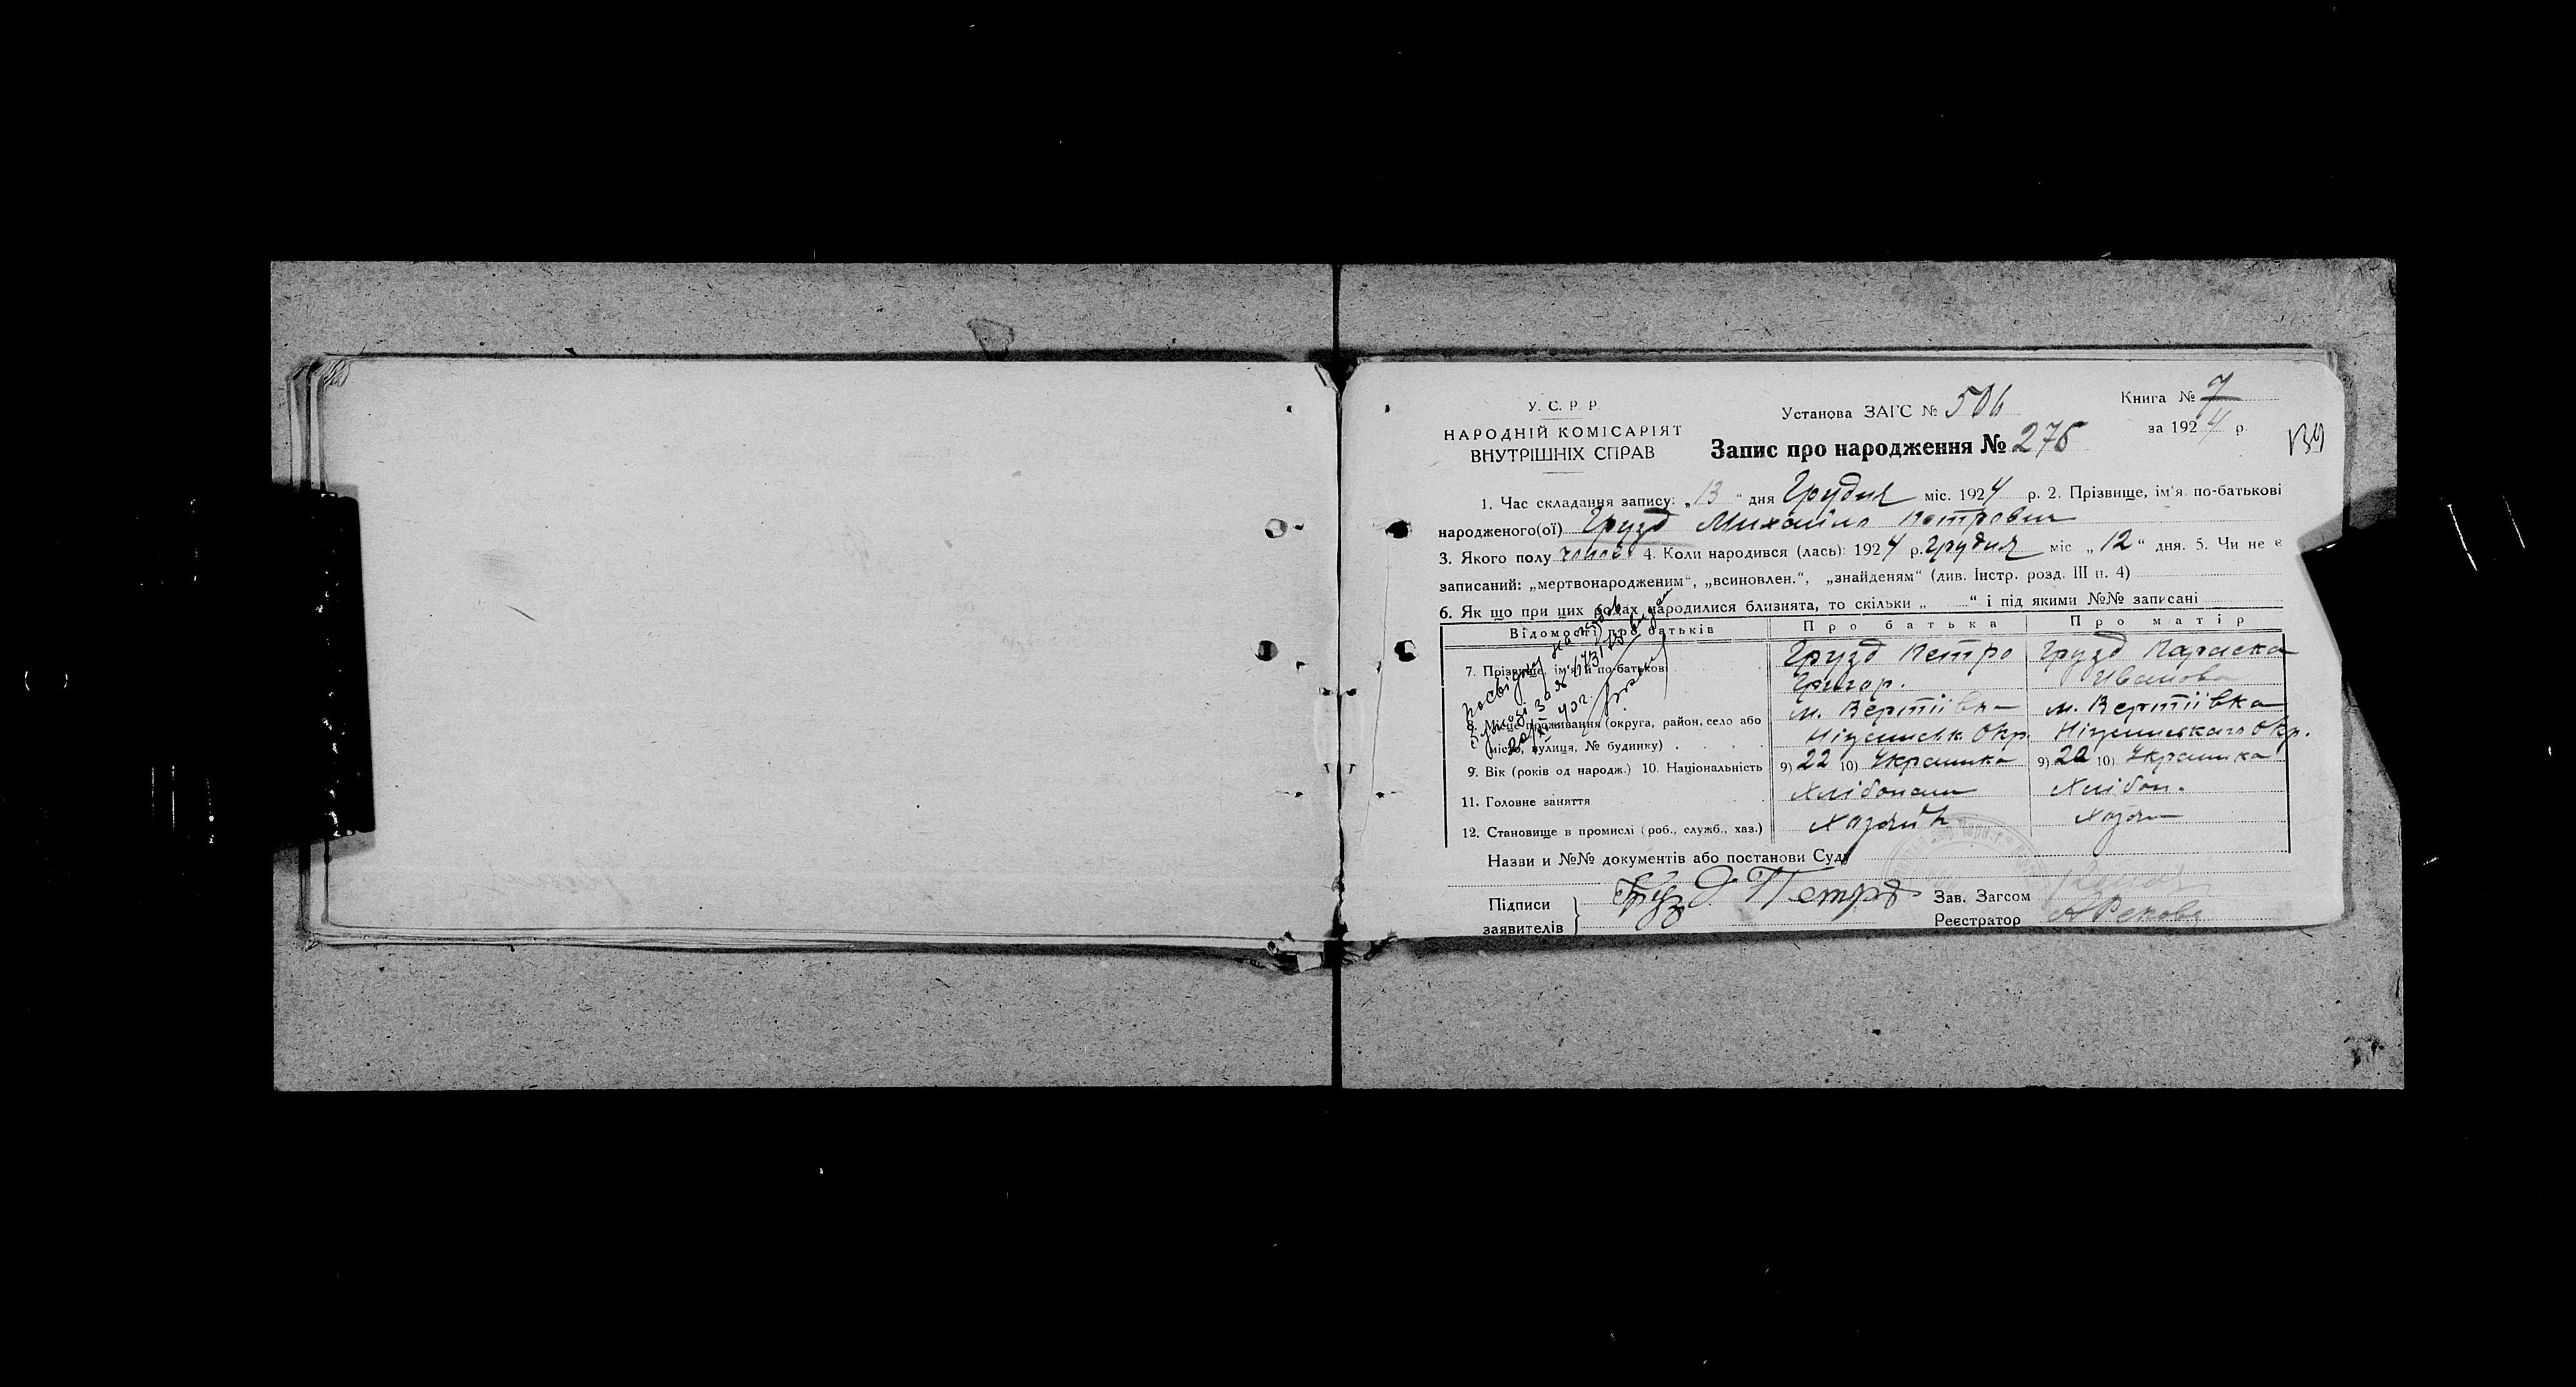 У. С. Р. Р.
НАРОДНІЙ КОМІСАРІЯТ
ВНУТРІШНІХ СПРАВ
Установа ЗАГС № 506
Запис про народження № 276
Книга № 7
за 1924 р.
139
1. Час складання запису: „13“ дня Грудня міс. 1924 р. 2. Прізвище, ім'я, по-батькові
народженого(ої) Грузд Михайло Петрович
3. Якого полу чолов. 4. Коли народився (лась): 1924 р. Грудня міс. „12“ дня. 5. Чи не є
записаний: „мертвонародженим“, „всиновлен.“, „знайденям“ (див. Інстр. розд. III п. 4)
6. Як що при цих родах народилися близнята, то скільки „ “ і під якими №№ записані
Відомості про батьків Про батька Про матір
7. Прізвище, ім'я й по-батькові Грузд Петро Грузд Параска
Григор. Иванова
8. Місце проживання (округа, район, село або м. Вертіївка м. Вертіївка
місто, вулиця, № будинку) Ніженськ. Окр. Ніженськаго Окр.
9. Вік (років од народж.) 10. Національність 9) 22 10) Украинка 9) 22 10) Украинка
11. Головне заняття Хлібопаш Хлібоп.
12. Становище в промислі (роб., служб., хаз.) Хазяин Хазяи
Назви и №№ документів або постанови Суду
Підписи
заявителів
Грузд Петро
Зав. Загсом
Реєстратор